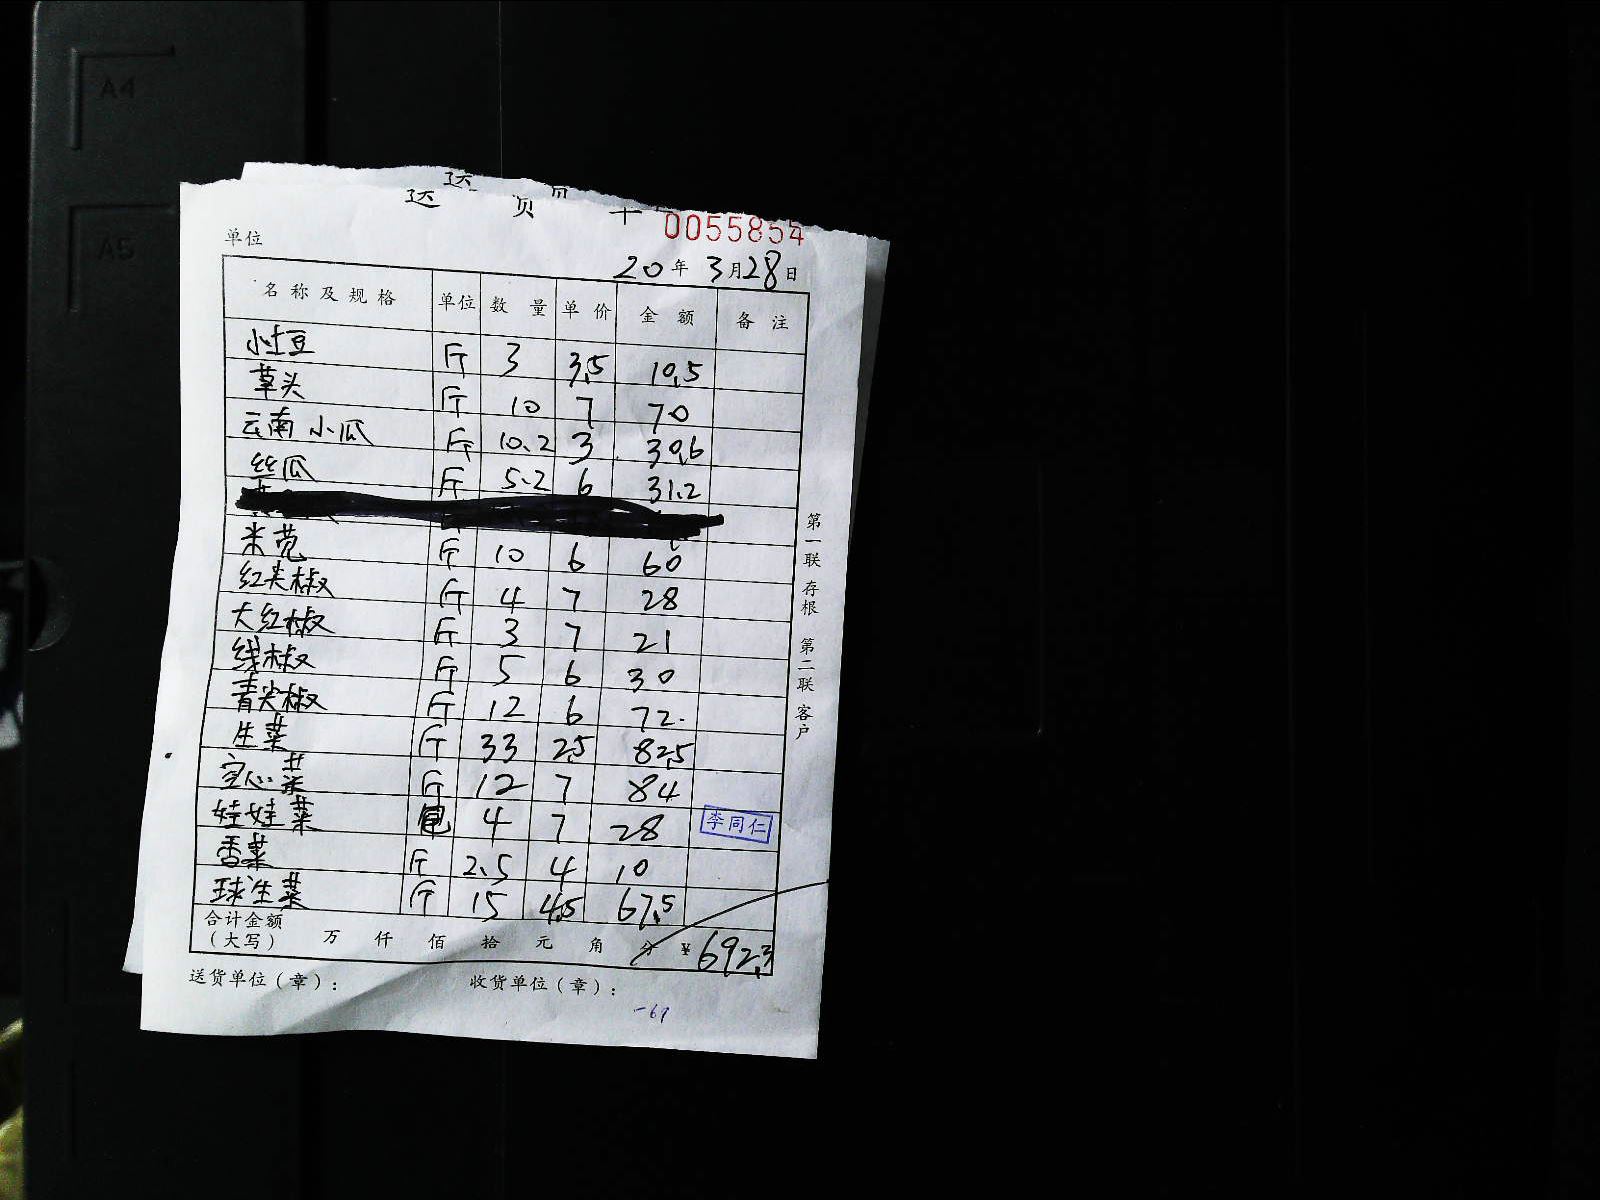 A4
A5
送 货 单
0055854
单位
20 年 3月28日
名称及规格 单位 数量 单价 金额 备注
小土豆 斤 3 3.5 10.5
草头 斤 10 7 70
云南小瓜 斤 10.2 3 30.6
丝瓜 斤 5.2 6 31.2
米苋 斤 10 6 60
红尖椒 斤 4 7 28
大红椒 斤 3 7 21
线椒 斤 5 6 30
青尖椒 斤 12 6 72.
生菜 斤 33 2.5 82.5
空心菜 斤 12 7 84
娃娃菜 4 7 28 李同仁
香菜 斤 2.5 4 10
球生菜 斤 15 4.5 67.5
合计金额（大写） 万 仟 佰 拾 元 角 分 ¥692.3
送货单位（章）： 收货单位（章）：
-69
第一联 存根 第二联 客户